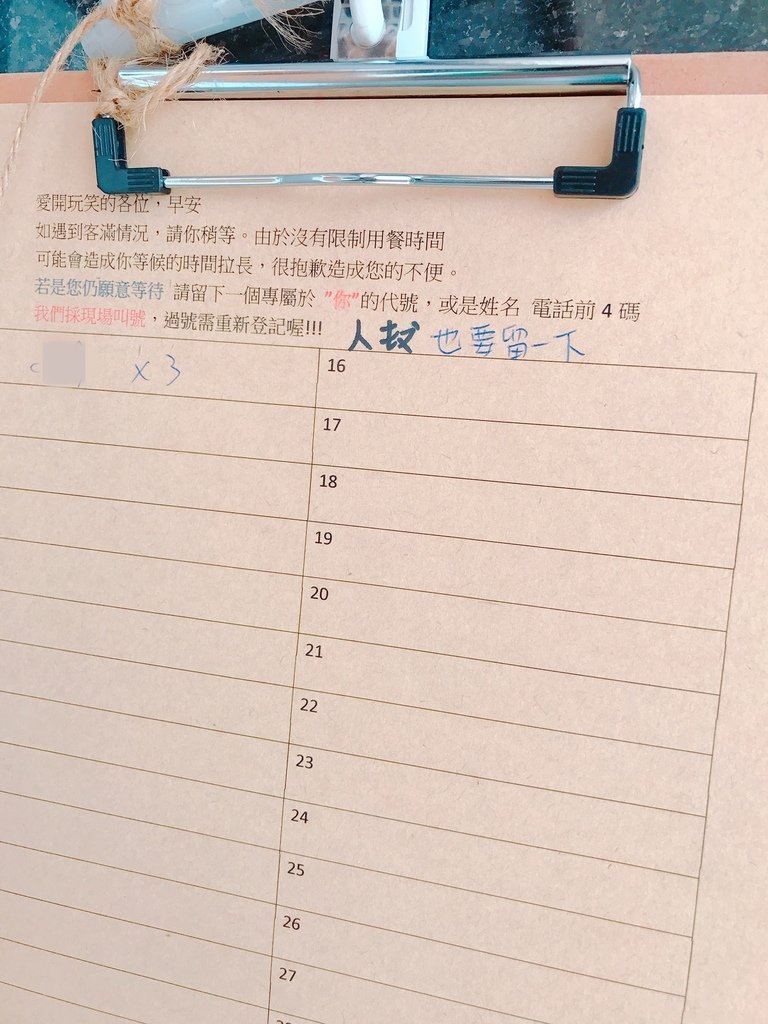 愛開玩笑的各位，早安
如遇到客滿情況，請你稍等。由於沒有限制用餐時間
可能會造成你等候的時間拉長，很抱歉造成您的不便。
若是您仍願意等待 請留下一個專屬於 "你"的代號，或是姓名 電話前 4 碼
我們採現場叫號，過號需重新登記喔!!!
人数 也要留一下
x 3
16
17
18
19
20
21
22
23
24
25
26
27